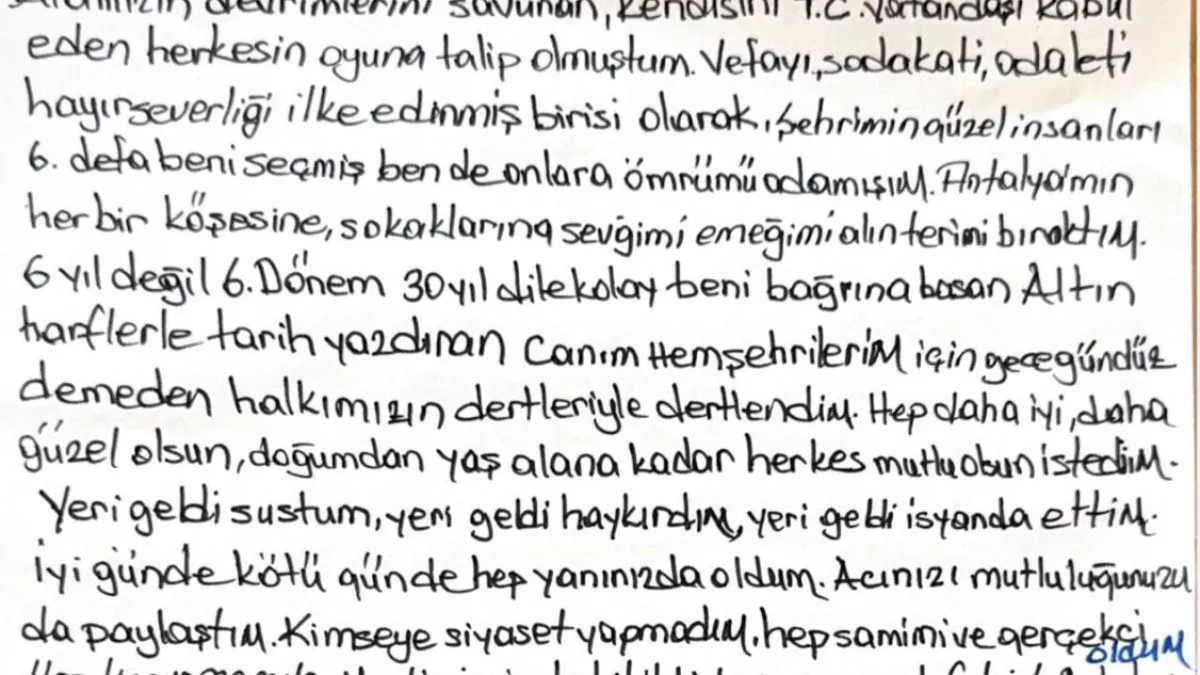 devrimlerini savunan, kendisini T.C. vatandaşı kabul
eden herkesin oyuna talip olmuştum. Vefayı, sadakati, adaleti
hayırseverliği ilke edinmiş birisi olarak, şehrimin güzel insanları
6. defa beni seçmiş ben de onlara ömrümü adamışım. Antalya'mın
her bir köşesine, sokaklarına sevğimi emeğimi alın terimi bıraktım.
6 yıl değil 6. Dönem 30 yıl dile kolay beni bağrına basan Altın
harflerle tarih yazdıran Canım Hemşehrilerim için gece gündüz
demeden halkımızın dertleriyle dertlendim. Hep daha iyi, daha
güzel olsun, doğumdan yaş alana kadar herkes mutlu olsun istedim.
Yeri geldi sustum, yeri geldi haykırdım, yeri geldi isyanda ettim.
İyi günde kötü günde hep yanınızda oldum. Acınızı mutluluğunuzu
da paylaştım. Kimseye siyaset yapmadım. hep samimi ve gerçekçi oldum